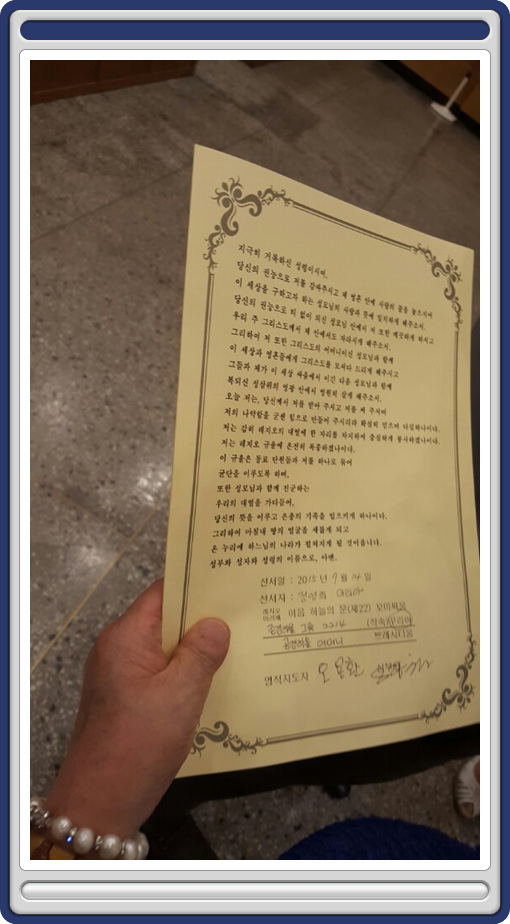 지극히 거룩하신 성령이시여,
당신의 권능으로 저를 감싸주시고 제 영혼 안에 사랑의 불을 놓으시어
이 세상을 구하고자 하는 성모님의 사랑과 뜻에 일치하게 해주소서.
당신의 권능으로 티 없이 되신 성모님 안에서 저 또한 깨끗하게 하시고
우리 주 그리스도께서 제 안에서도 자라시게 해주소서.
그리하여 저 또한 그리스도의 어머니이신 성모님과 함께
이 세상과 영혼들에게 그리스도를 모셔다 드리게 해주시고
그들과 제가 이 세상 싸움에서 이긴 다음 성모님과 함께
복되신 성삼위의 영광 안에서 영원히 살게 해주소서.
오늘 저는, 당신께서 저를 받아 주시고 저를 써 주시며
저의 나약함을 굳센 힘으로 만들어 주시리라 확실히 믿으며 다짐하나이다.
저는 감히 레지오의 대열에 한 자리를 차지하여 충실하게 봉사하겠나이다.
저는 레지오 규율에 온전히 복종하겠나이다.
이 규율은 동료 단원들과 저를 하나로 묶어
군단을 이루도록 하며,
또한 성모님과 함께 진군하는
우리의 대열을 가다듬어,
당신의 뜻을 이루고 은총의 기적을 일으키게 하나이다.
그리하여 마침내 땅의 얼굴을 새롭게 되고
온 누리에 하느님의 나라가 펼쳐지게 될 것이옵니다.
성부와 성자와 성령의 이름으로, 아멘.
선서일 : 2015 년 7 월 14 일
선서자 : 정영희
레지오 마리애 마음 하늘의 문(제22) 꼬미씨움
2214 (직속)꾸리아
어머니 쁘레시디움
영적지도자 오용환